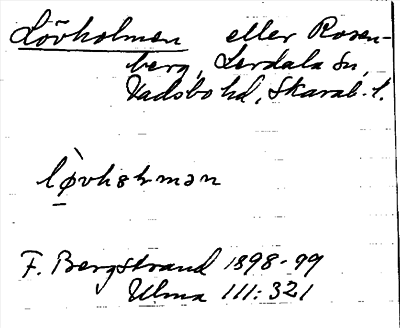 Lövholmen eller Rosen-
berg, Lerdala sn,
Vadsbo hd, Skarab. l.
F. Bergstrand 1898-99
Ulma 111:321